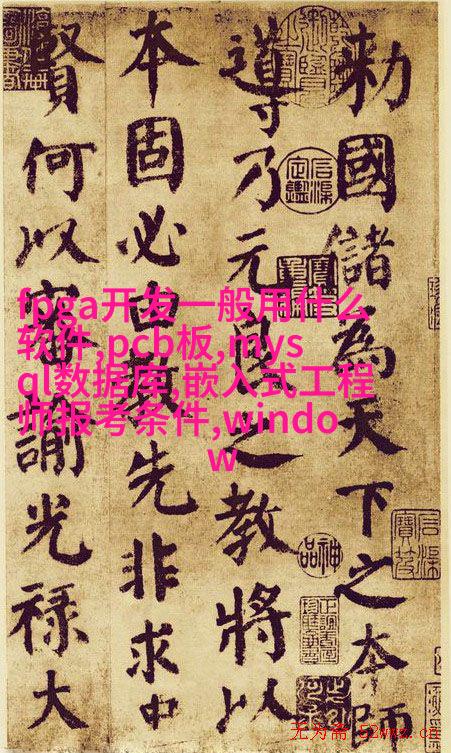 勅國儲為天下之本師
導乃元良之教將以
本固必由教先非求中
賢何以審諭光祿大
fpga开发一般用什么
软件,pcb板,mys
ql数据库,嵌入式工程
师报考条件,windo
w
神品
无为斋